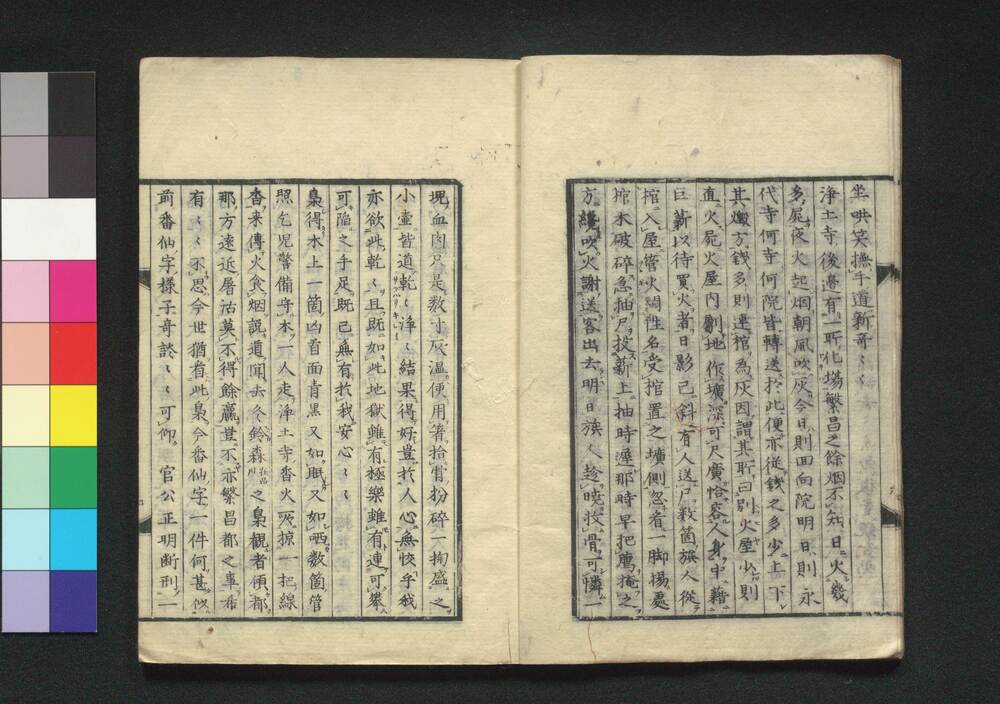 坐哄笑撫手道新奇〻〻
浄土寺後邉有一所化場繁昌之餘烟不知日火幾
多屍夜火起烟朝風吹灰今日則面向院明日則永
代寺何寺何院皆轉送於此便亦從錢之多少上下
其燬方錢多則連棺為灰因謂其所曰別火屋少則
直火屍火屋内劚地作壙深可尺廣恰容人身中藉
巨薪以待買火者日影已斜有人送尸数箇族人從
棺入屋管火問姓名受棺置之壙側忽看一脚揚處
棺木破碎急抽尸投薪上抽時遲那時早把薦掩之
方纔吹火謝送客出去明日族人趁曉收骨可憐一
塊血肉只是数寸灰温便用箸拾骨扮碎一掬盛之
小壷皆道乾〻浄〻結果得好豈於人心無恔乎我
亦欲此乾〻且既如此地獄雖有極樂雖有連可攀
可陥之手足既已無有於我安心〻〻
梟得木上一箇凶首面青黒又如眠又如哂数箇管
照乞児警備守木一人走浄土寺杳火一人掠一把線
香来傳火食烟説道聞去冬鈴森之梟観者傾都
那方遠近屠沽莫不得餘贏豈不亦繁昌都之事希
有〻〻不思今世猶看此梟今番仙字一件何甚似
前番仙字樣子奇談〻〻可仰官公正明断刑一